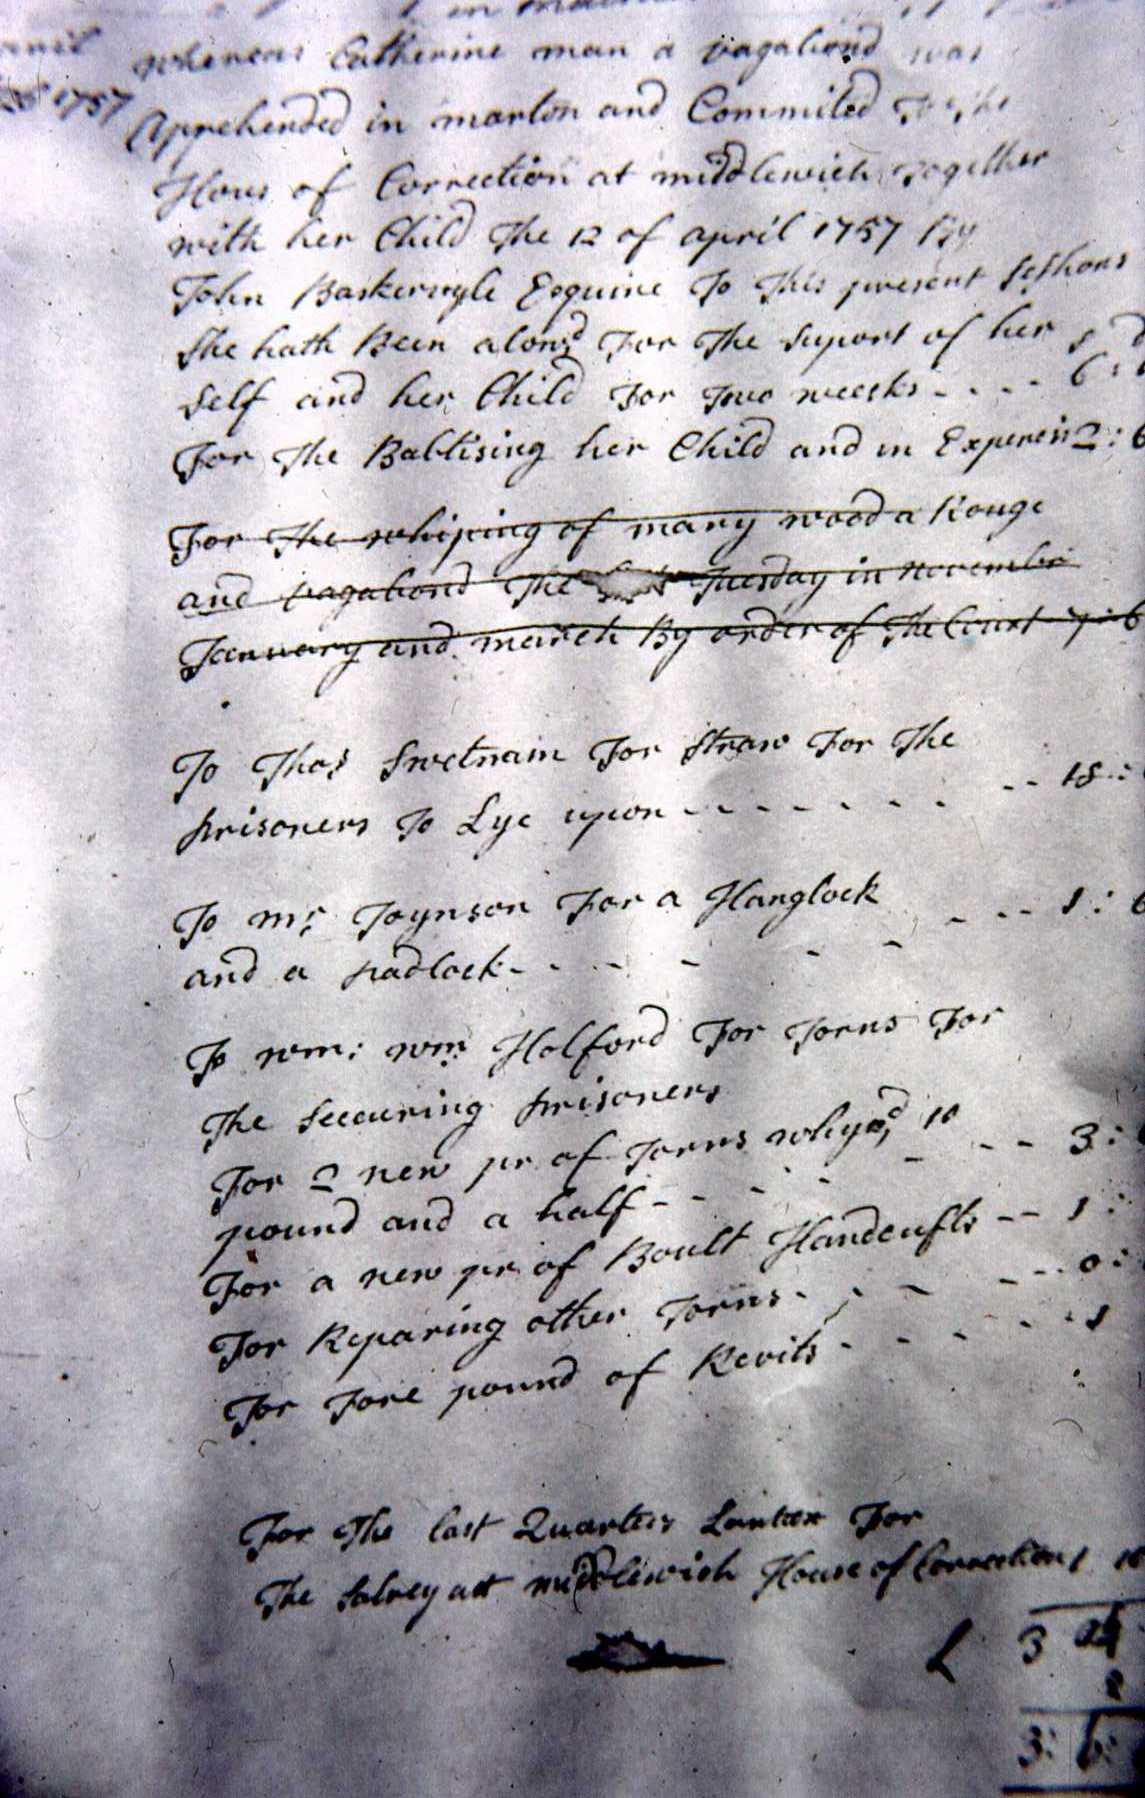 whereas Catherine man a vagabond was
1757
Apprehended in marton and Commited To the
Hous of Correction at middlewich Together
with her Child The 12 of april 1757 By
John Baskervyle Esquire To This present Seshons
She hath Been alowd For The Suport of her s d
Self and her Child For Two weeks - - - - 6 :
For The Babtising her Child and in Expences 2 : 6
For The whiping of mary wood a Rouge
and vagabond The Tuesday in november
January and march By order of The Court 7 : 6
To Thos Swetnam For Straw For The
prisoners To Lye upon - - - - - - - - - 18 :
To mr Toynson For a Hanglock
and a padlock - - - - - - - - 1 : 6
To wm: wm Holford For Iorns For
The Seccuring prisoners
For 2 new pr of Iorns whyed 10
pound and a half - - - - - - - 3 :
For a new pr of Boult Handcufts - - 1 :
For Reparing other Iorns - - - - - 0 :
For Fore pound of Revits - - - - - 1
For The last Quarters For
The Salrey att middlewich House of Correction 1 10
L 3 04
2
3 : 6 :